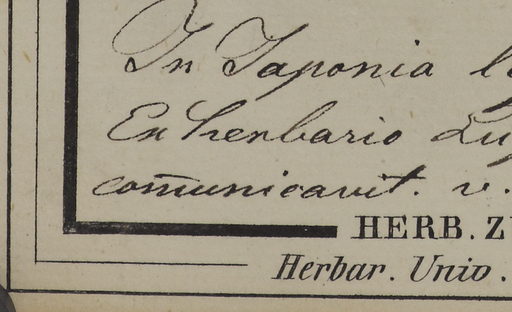 In Japonia
Ex herbario
com̄unicavit. v.
HERB. Z
Herbar. Univ.